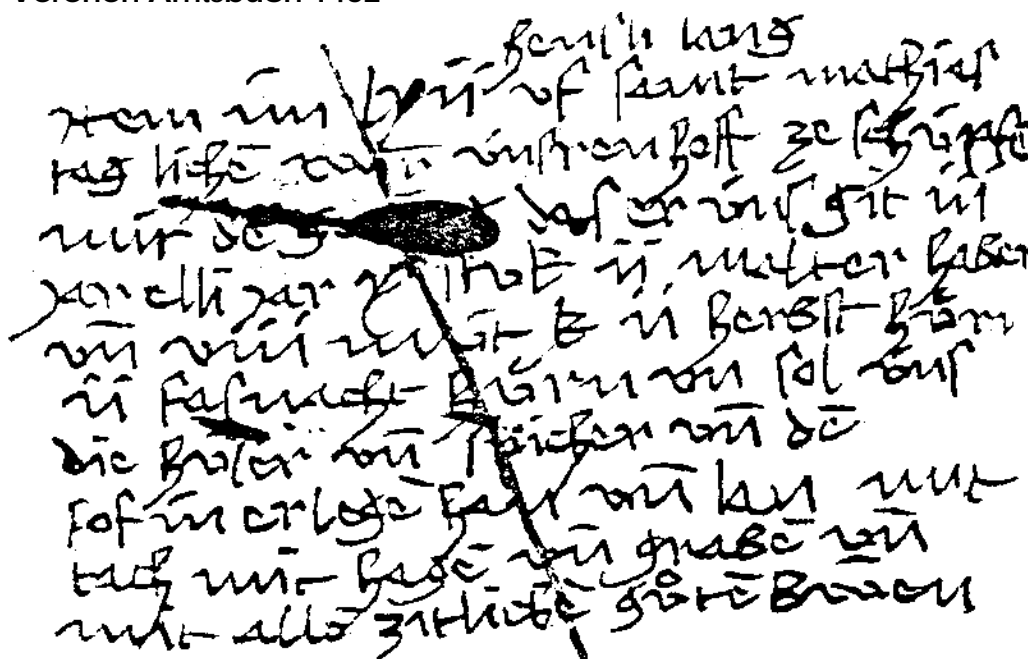 Verenen Amtsbuch 1462
hensli lang
Item im lxii uf sant mathies
tag lichē unsren hoff ze schüpfe
mit dē das er uns git iii
jar elli jar stuk ii malter haber
vn̄ viii mut k ii herbst hůnr
ii fasnacht hůnr vn̄ sol uns
die hüser vn̄ spicher vn̄ dē
hof in er legē han vn̄ lan mit
tach mit hagē vn̄ grabē vn̄
mit allē zitlichē gůtē Büwen